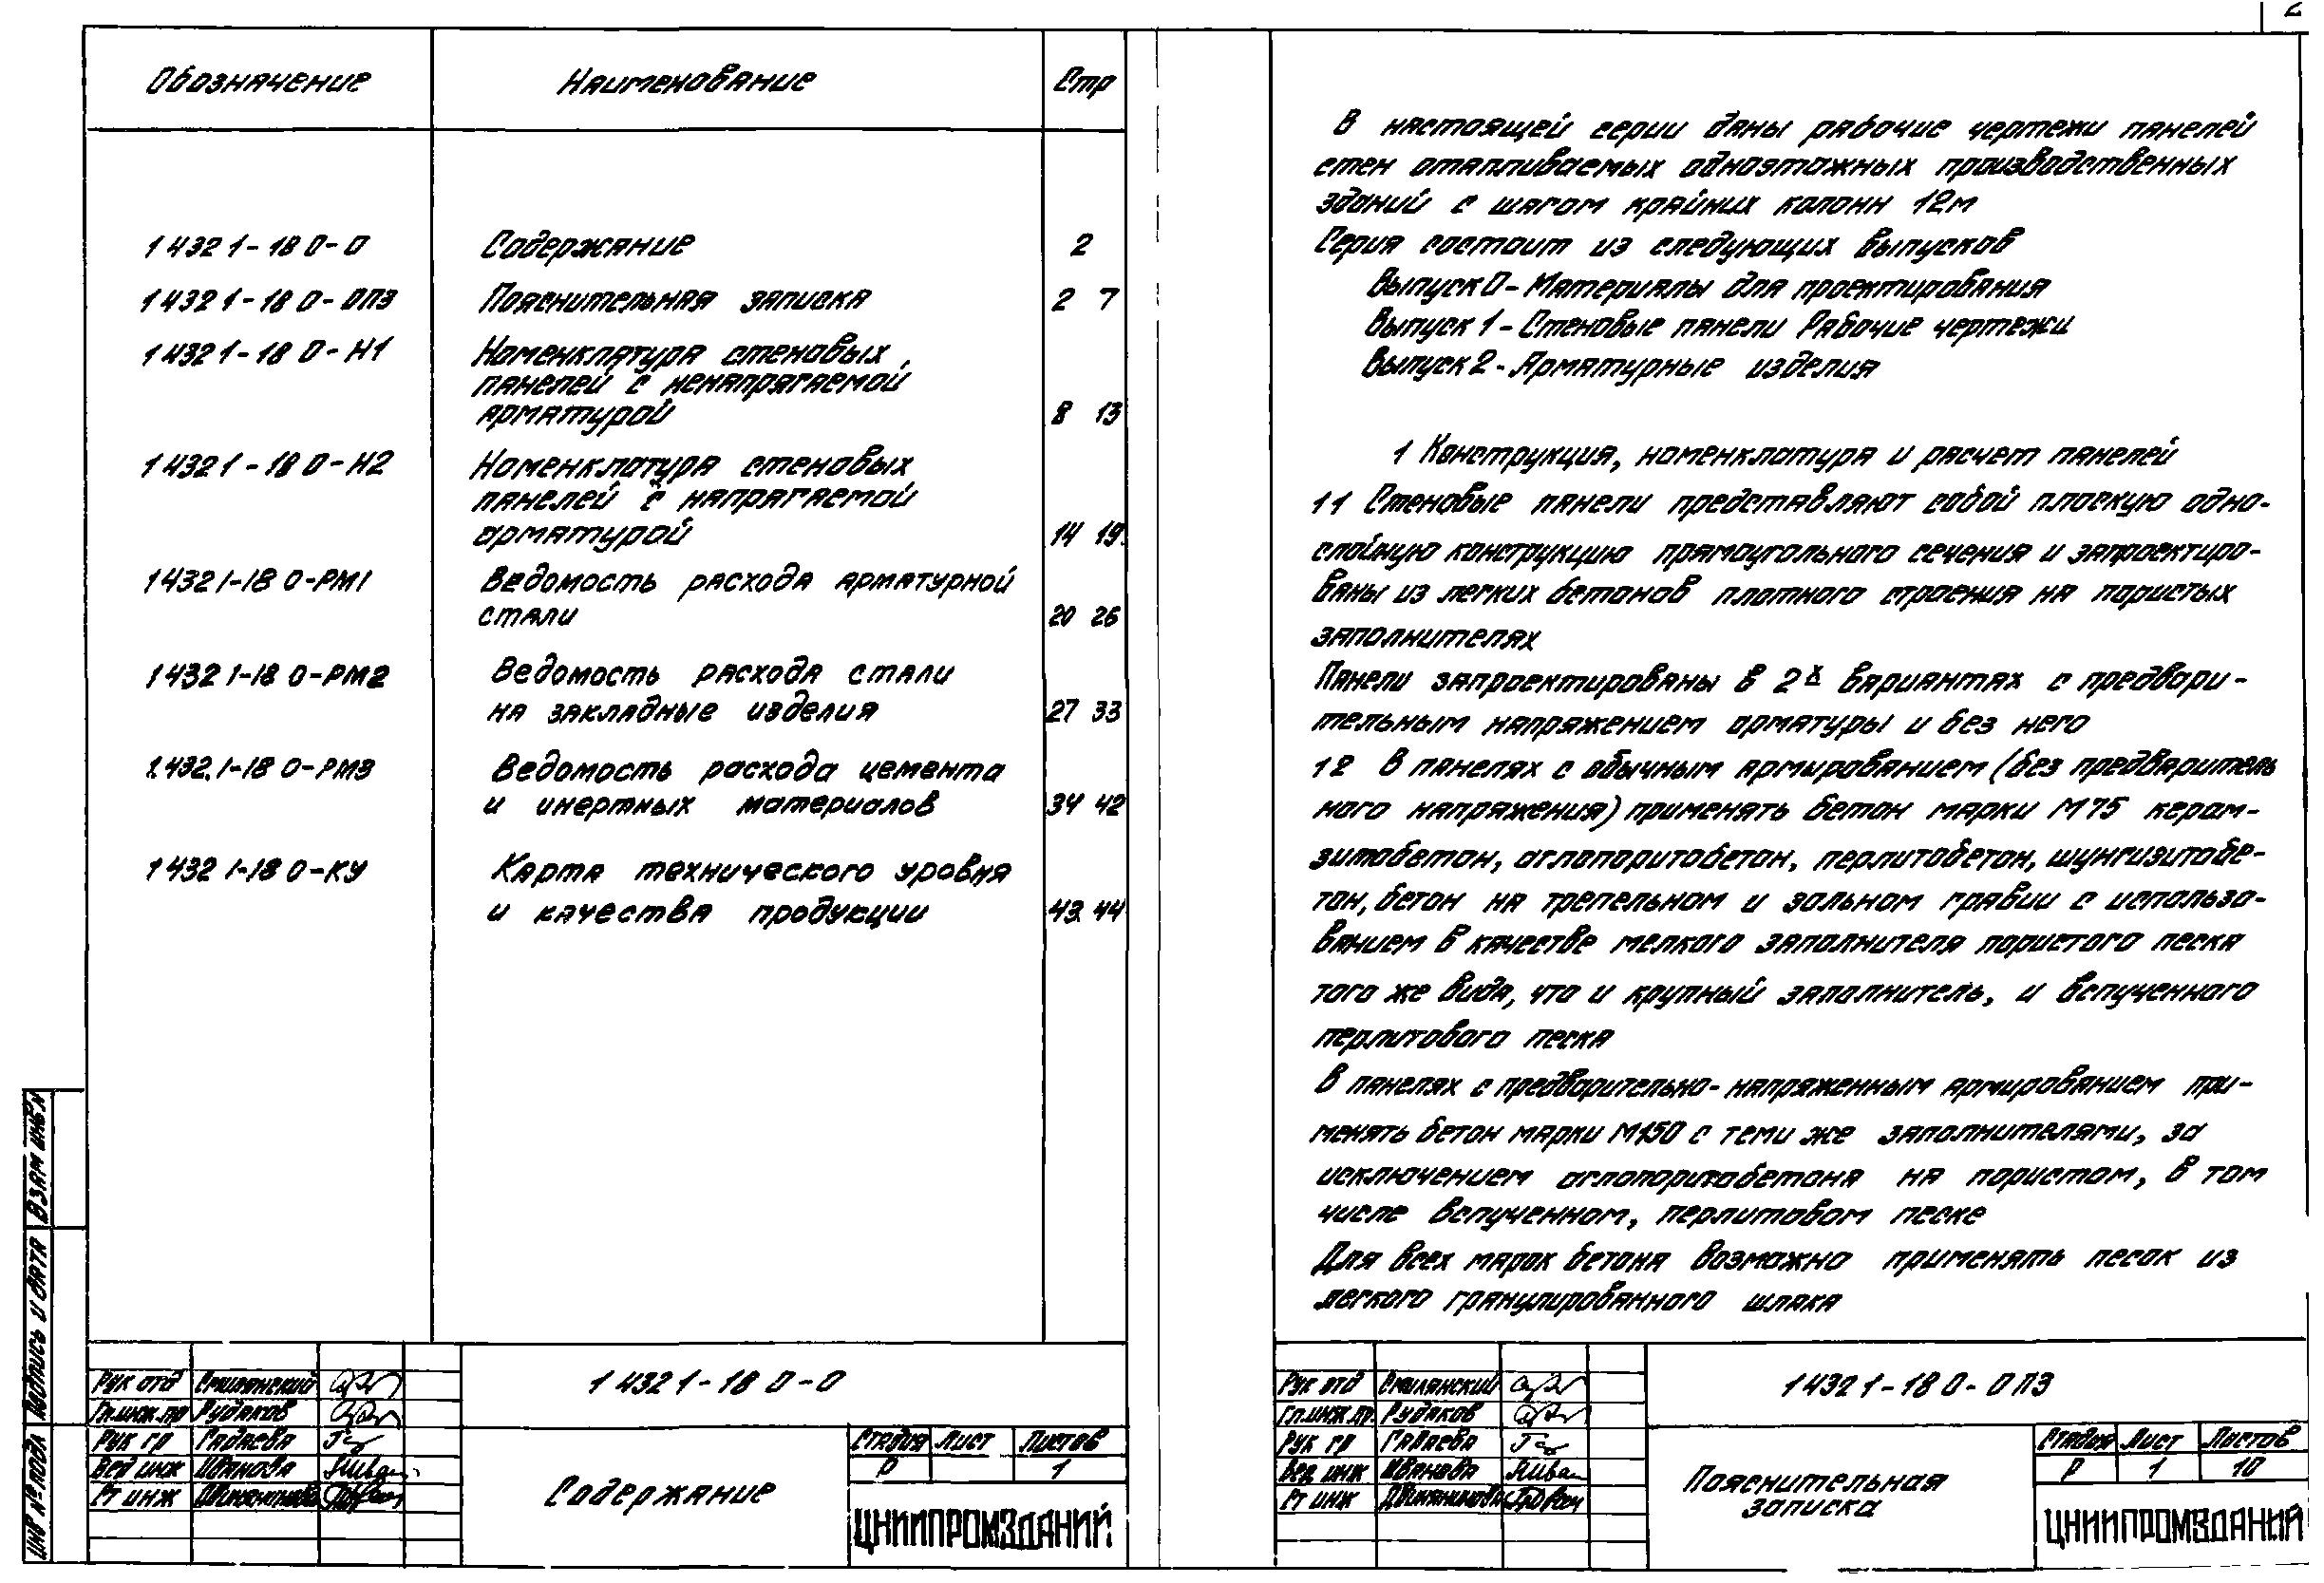 2
Обозначение Наименование Стр
1 432 1-18 0-0 Содержание 2
1 432 1-18 0-0ПЗ Пояснительная записка 2 7
1 432 1-18 0-Н1 Номенклатура стеновых
панелей с ненапрягаемой
арматурой 8 13
1 432 1-18 0-Н2 Номенклатура стеновых
панелей с напрягаемой
арматурой 14 19
1 432 1-18 0-РМ1 Ведомость расхода арматурной
стали 20 26
1 432 1-18 0-РМ2 Ведомость расхода стали
на закладные изделия 27 33
1.432.1-18 0-РМ3 Ведомость расхода цемента
и инертных материалов 34 42
1 432 1-18 0-КУ Карта технического уровня
и качества продукции 43 44
Инв № подл Подпись и дата Взам инв №
Рук отд Смилянский
Гл.инж.пр Рудаков
Рук гр Гадаева
Вед инж Иванова
Ст инж
1 432 1-18 0-0
Содержание
Стадия Лист Листов
Р 1
ЦНИИПРОМЗДАНИЙ
В настоящей серии даны рабочие чертежи панелей
стен отапливаемых одноэтажных производственных
зданий с шагом крайних колонн 12м
Серия состоит из следующих выпусков
Выпуск 0 - Материалы для проектирования
Выпуск 1 - Стеновые панели Рабочие чертежи
Выпуск 2 - Арматурные изделия
1 Конструкция, номенклатура и расчет панелей
1 1 Стеновые панели представляют собой плоскую одно-
слойную конструкцию прямоугольного сечения и запроектиро-
ваны из легких бетонов плотного строения на пористых
заполнителях
Панели запроектированы в 2х вариантах с предвари-
тельным напряжением арматуры и без него
1 2 В панелях с обычным армированием (без предваритель
ного напряжения) применять бетон марки М75 керам-
зитобетон, аглопоритобетон, перлитобетон, шунгизитобе-
тон, бетон на трепельном и зольном гравии с использо-
ванием в качестве мелкого заполнителя пористого песка
того же вида, что и крупный заполнитель, и вспученного
перлитового песка
В панелях с предварительно-напряженным армированием при-
менять бетон марки М150 с теми же заполнителями, за
исключением аглопоритобетона на пористом, в том
числе вспученном, перлитовом песке
Для всех марок бетона возможно применять песок из
легкого гранулированного шлака
Рук отд Смилянский
Гл.инж.пр Рудаков
Рук гр Гадаева
Вед инж Иванова
Ст инж
1 432 1-18 0-0ПЗ
Пояснительная
записка
Стадия Лист Листов
Р 1 10
ЦНИИПРОМЗДАНИЙ